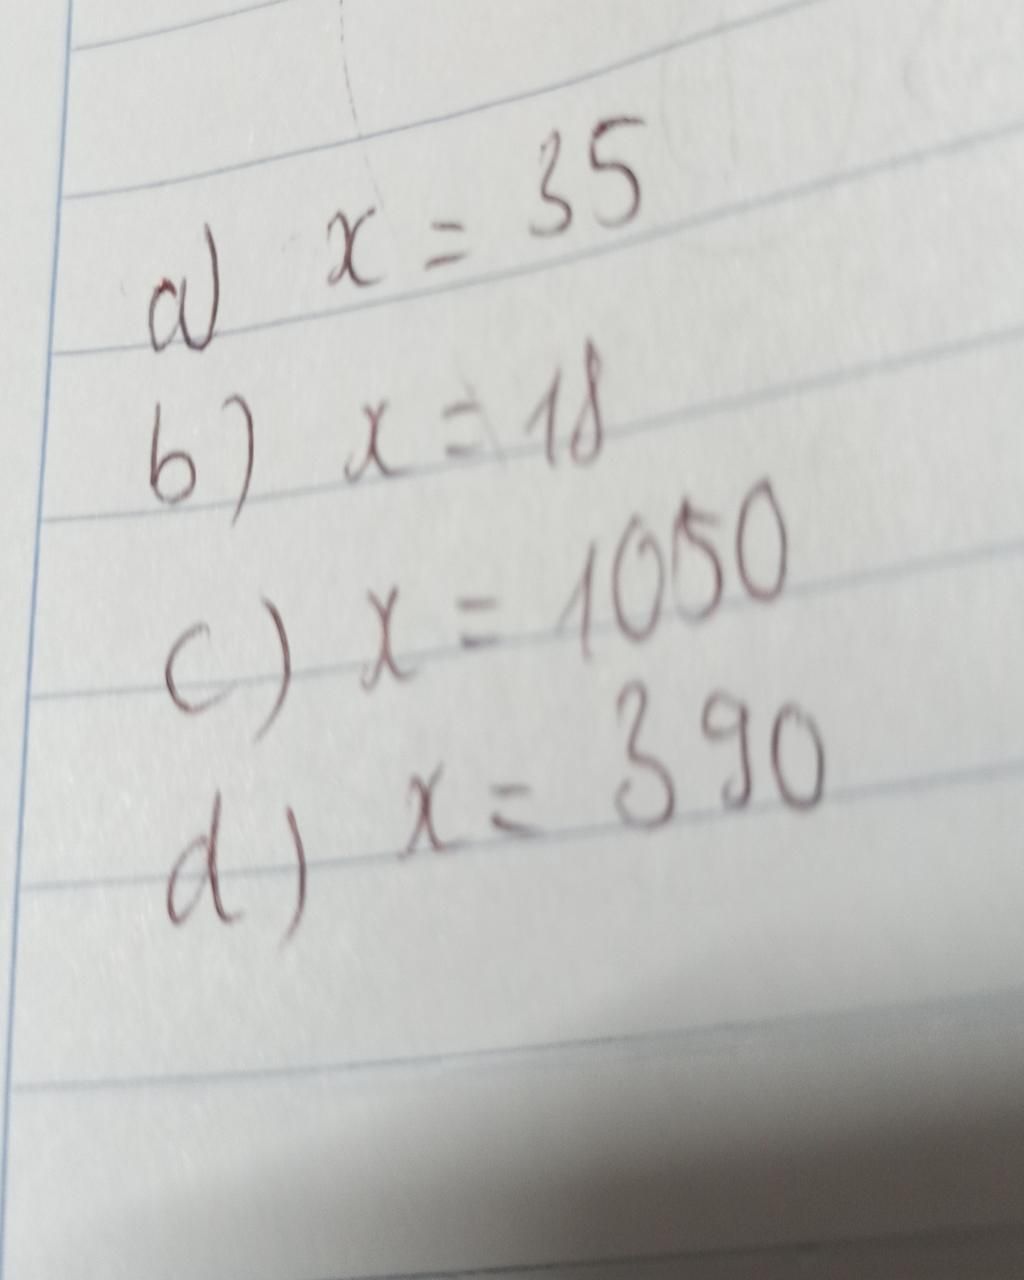 a) x = 35
b) x = 18
c) x = 1050
d) x = 390